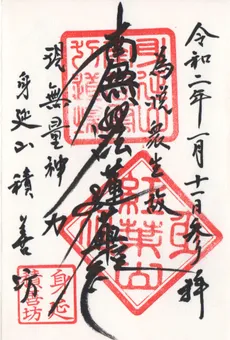 令和二年一月十一日参拝
為悦衆生故
南無妙法蓮華経
現無量神力
身延山積善坊
身延
積善坊